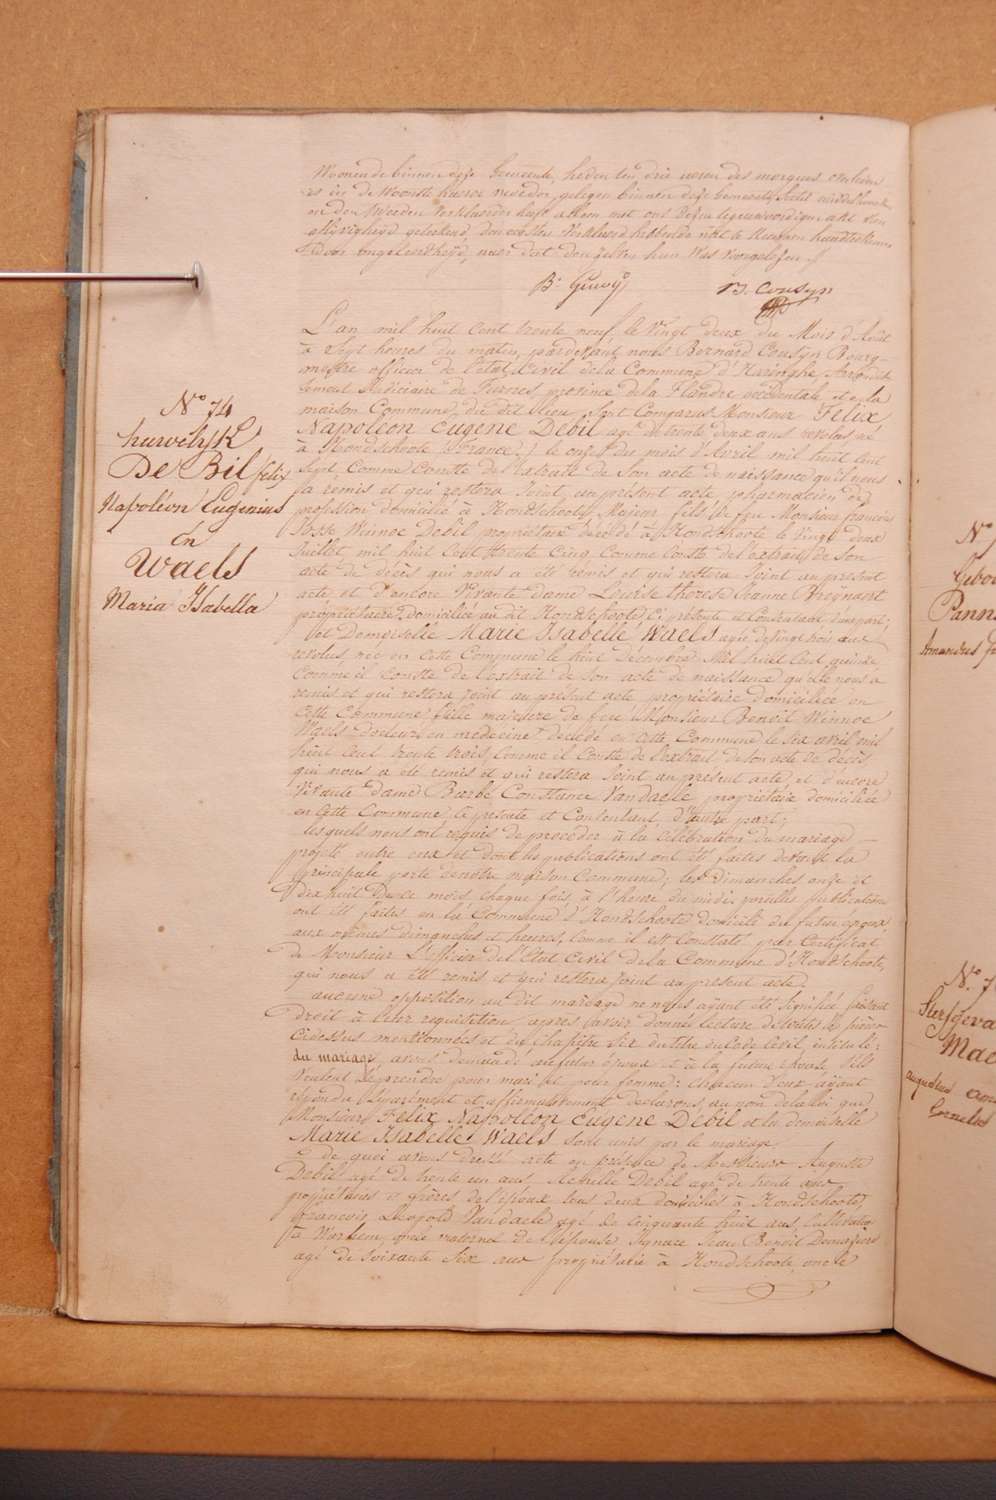 Woonende binnen deze Gemeente, heden ten drie uren des morgens overleden
is in de Woonst haerer resideer, gelegen binnen deze Gemeente
en den Tweeden Verklaerder heeft alleen met ons
geteekend, den eersten Verklaerd hebbende niet te kunnen handteekenen,
naer dat den zelven hun Was voorgelezen
B. Cousyn
L'an mil huit Cent trente neuf, le Vingt deux du Mois d'Août
à Sept heures du matin, pardevant nous Bernard Cousyn Bourg-
mestre officier de l'état Civil de la Commune d'Haringhe Arrondis
sement Judiciaire de Furnes province de la Flandre occidentale et en la
maison Commune du dit lieu, sont Comparus Monsieur Félix
Napoléon Eugène Debil agé de trente deux ans revolus, né
à Hondschoote (France) le onze du mois d'Avril mil huit Cent
Sept Comme Conste de l'extrait de Son acte de naissance qu'il nous
a remis et qui restera Joint au présent acte, pharmacien de
profession domicilié à Hondschoote, Majeur fils de feu Monsieur François
Josse Winoc Debil propriétaire décédé à Hondschoote le Vingt deux
Juillet mil huit Cent trente Cinq Comme Conste de l'extrait de Son
acte de décès qui nous a été remis et qui restera Joint au présent
acte et d'encore Vivante dame Louise Thérèse Jeanne
propriétaire domiciliée au dit Hondschoote Ci présente et Consentant d'une part;
Et Demoiselle Marie Isabelle Waels agée de Vingt trois ans
revolus, née en Cette Commune le huit Décembre Mil huit Cent quinze
Comme il Conste de l'extrait de Son acte de naissance qu'elle nous a
remis et qui restera joint au présent acte propriétaire domiciliée en
Cette Commune, fille majeure de feu Monsieur Benoit Winnoc
Waels docteur en medecine décédé en Cette Commune le Six avril mil
huit Cent trente trois, Comme il Conste de l'extrait de son acte de décès
qui nous a été remis et qui restera Joint au présent acte et d'encore
Vivante dame Barbe Constance Vandaele propriétaire domiciliée
en Cette Commune Ci présente et Consentant, d'autre part;
lesquels nous ont requis de proceder à la Célébration du mariage
projetté entre eux et dont les publications ont été faites devant la
principale porte de notre maison Commune; les Dimanches onze et
dix huit De Ce mois chaque fois à l'heure du midi, pareilles publications
ont été faites en la Commune d'Hondschoote domicile du futur époux,
aux mêmes dimanches et heures, Comme il est Constaté par Certificat
de Monsieur L'officier de l'Etat Civil de la Commune d'Hondschoote,
qui nous a été remis et qui restera joint au présent acte.
aucune opposition au dit mariage ne nous ayant été Signifié faisant
droit à leur requisition, après avoir donné lecture de toutes les pièces
Cidessus mentionnées et du Chapitre Six du titre du Code Civil, intitulé:
du mariage, avons demandé au futur époux et à la future épouse, S'ils
Veulent Se prendre pour mari et pour femme: chacun d'eux ayant
répondu Séparément et affirmativement declarons au nom de la loi que
Monsieur Félix Napoléon Eugène Debil et la demoiselle
Marie Isabelle Waels Sont unis par le mariage
de quoi avons dressé acte en présence de Messieurs Auguste
Debil agé de trente un ans, Achille Debil agé de trente ans
propriétaires et frères de l'époux tous deux domiciliés à Hondschoote,
François Léopold Vandaele agé de Cinquante huit ans, Cultivateur
à Warhem, oncle maternel de l'épouse Ignace Jean Benoit
agé de Soixante Six ans propriétaire à Hondschoote, oncle
N° 74
huwelijk
De Bil félix
Napoléon Eugenius
En
Waels
Maria Isabella
N°
Pann
Amandus
N° 7
Mae
augustus
Cornelius